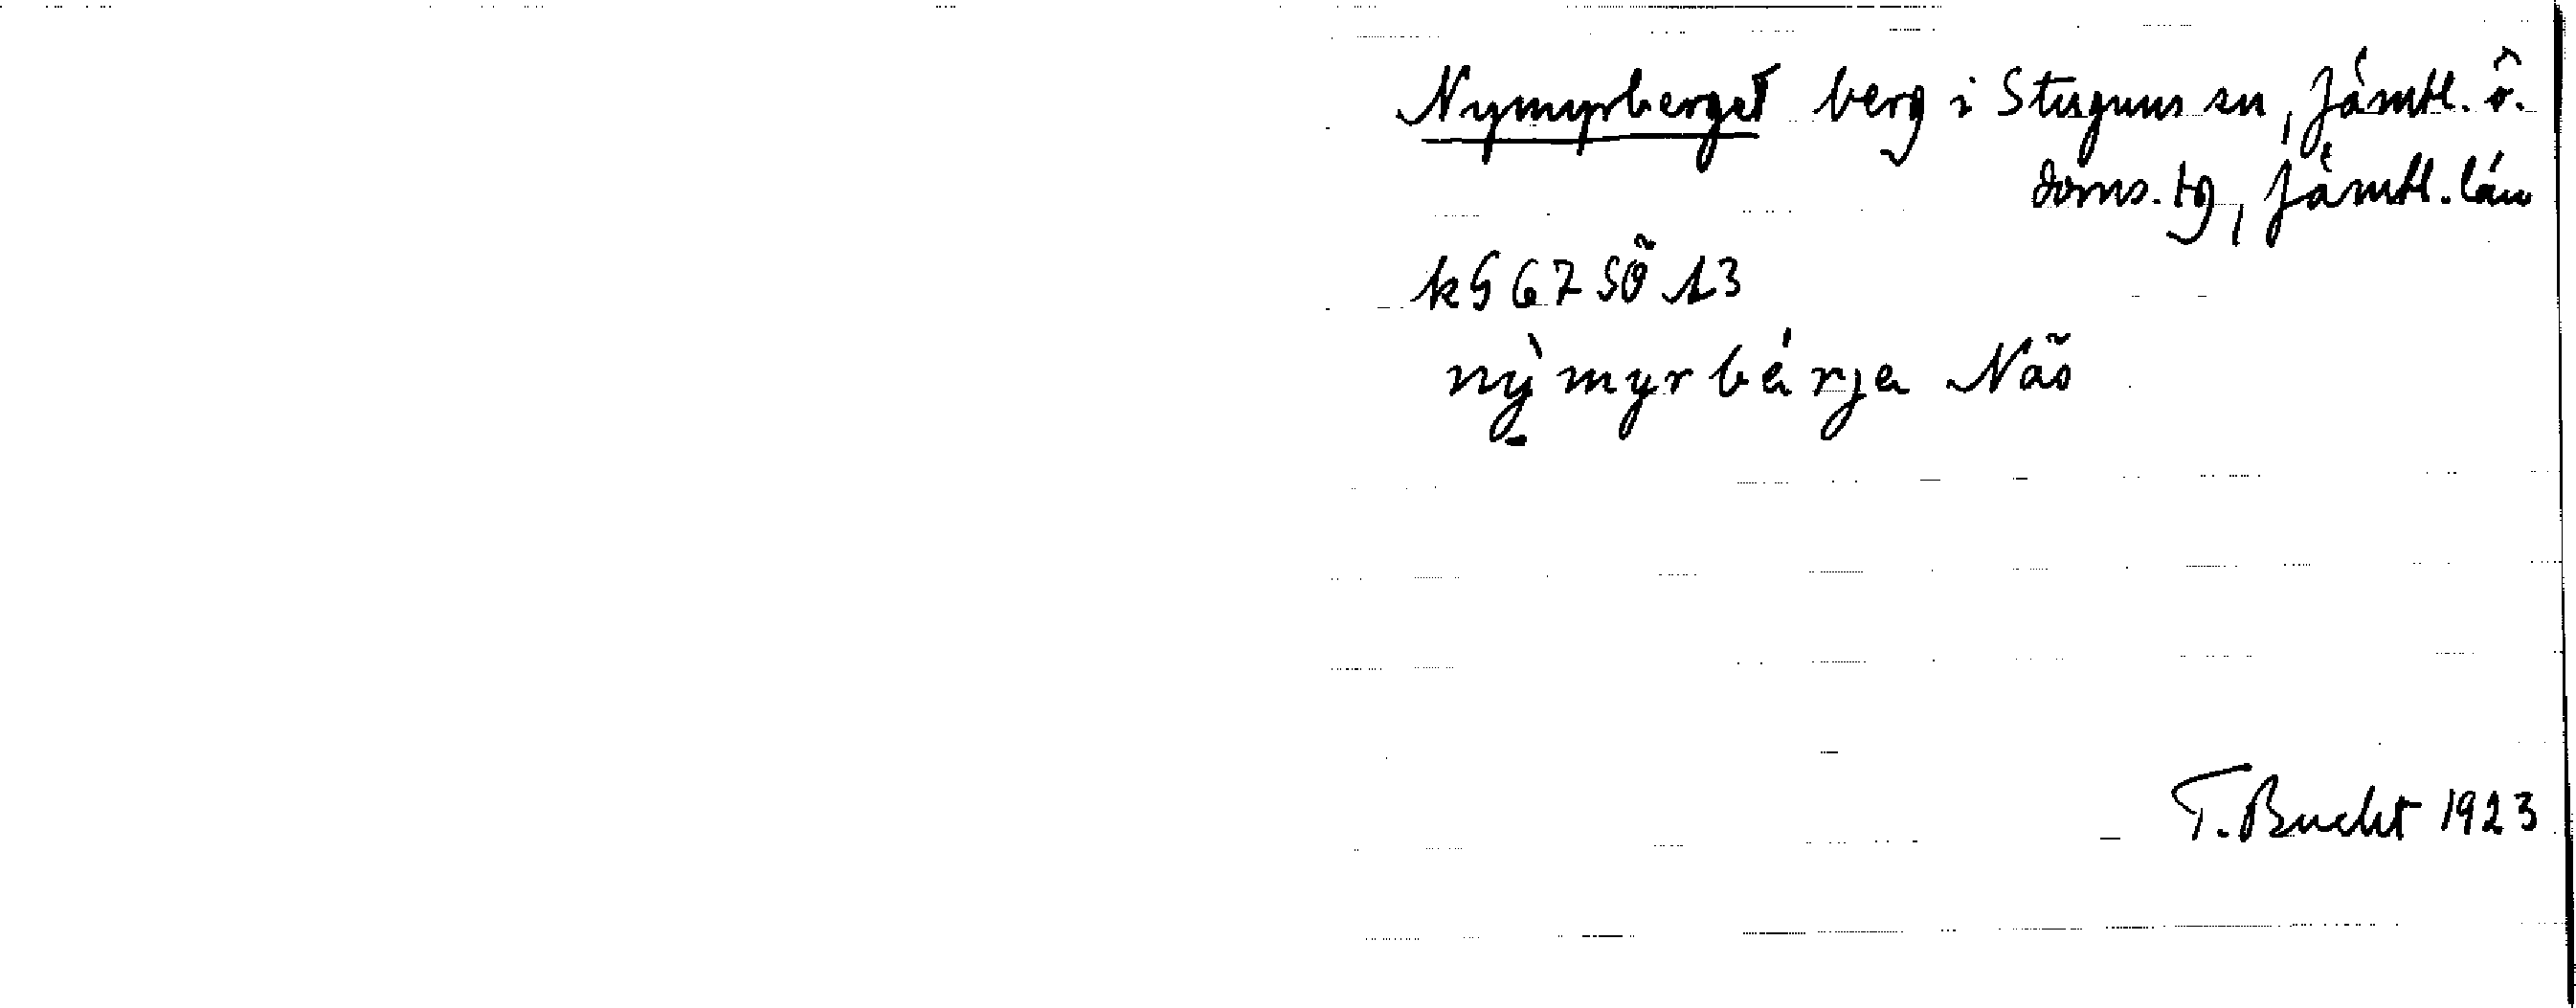 Nymyrberget berg i Stuguns sn, Jämtl. ö.
doms. tg, Jämtl. län
kg 67 SÖ 13
nỳmyrbérje Näs
T. Bucht 1923